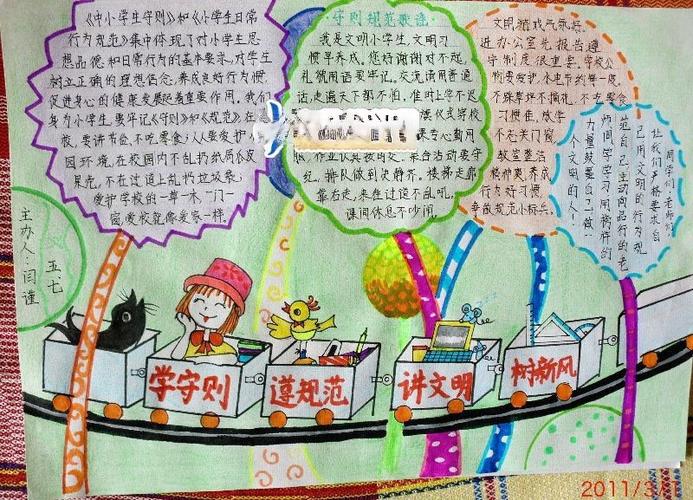 《中小学生守则》和《小学生日常
行为规范》集中体现了对小学生思
想品德和日常行为的基本要求,对学生
树立正确的理想信念,养成良好行为惯,
促进身心的健康发展起着重要作用。我们
身为小学生要牢记《守则》和《规范》在
校,要讲节俭,不吃零食;人人要爱护
园环境,在校园内不乱扔纸屑
果壳,不在过道上乱扔垃圾
爱护学校的一草一木,一门一
窗,爱校就像爱家一样。
守则规范歌谣
我是文明小学生,文明习
惯早养成。您好谢谢对不起,
礼貌用语要牢记。交流请用普通
话,走遍天下都不怕。准时上学不迟
作业认真按时
纪,排队做到快静齐。楼梯走廊
靠右走,来在过道不乱吼。
课间休息不吵闹
文明游戏气氛
进办公室先报告,遵
守制度很重要。学校公
物要爱护,水电节约每一度。
不踩草坪不摘花,不吃零食
不忘关门窗
行为好习惯,
争做规范小标兵。
同学们,老师们,
让我们严格要求自
己,用文明的行为规
范自己,主动向品行的老
师同学学习,用榜样的
力量鼓舞自己,做一
个文明的人!
主办人:闫谨
五、七
学守则
遵规范
讲文明
树新风
2011/3/1